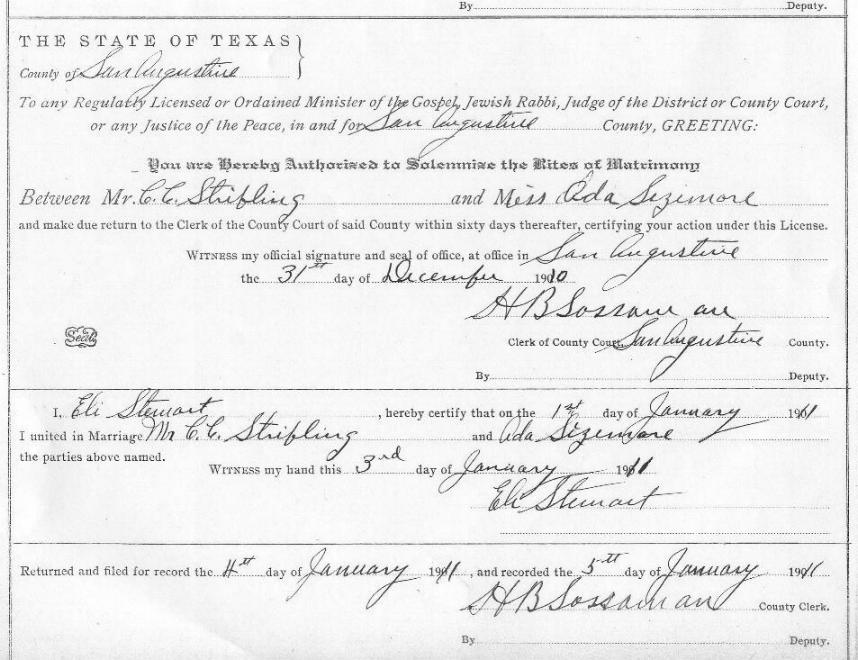 By Deputy.
THE STATE OF TEXAS }
County of San Augustine
To any Regularly Licensed or Ordained Minister of the Gospel, Jewish Rabbi, Judge of the District or County Court,
or any Justice of the Peace, in and for San Augustine County, GREETING:
You are Hereby Authorized to Solemnize the Rites of Matrimony
Between Mr. C. C. Stripling and Miss Ada Sizemore
and make due return to the Clerk of the County Court of said County within sixty days thereafter, certifying your action under this License.
WITNESS my official signature and seal of office, at office in San Augustine
the 31st day of December 1910
H B Sossaman
Seal
Clerk of County Court, San Augustine County.
By Deputy.
I, Eli Stewart, hereby certify that on the 1st day of January 1911
I united in Marriage Mr C. C. Stripling and Ada Sizemore
the parties above named.
WITNESS my hand this 3rd day of January 1911
Eli Stewart
Returned and filed for record the 4st day of January 1911, and recorded the 5th day of January 1911
H B Sossaman County Clerk.
By Deputy.